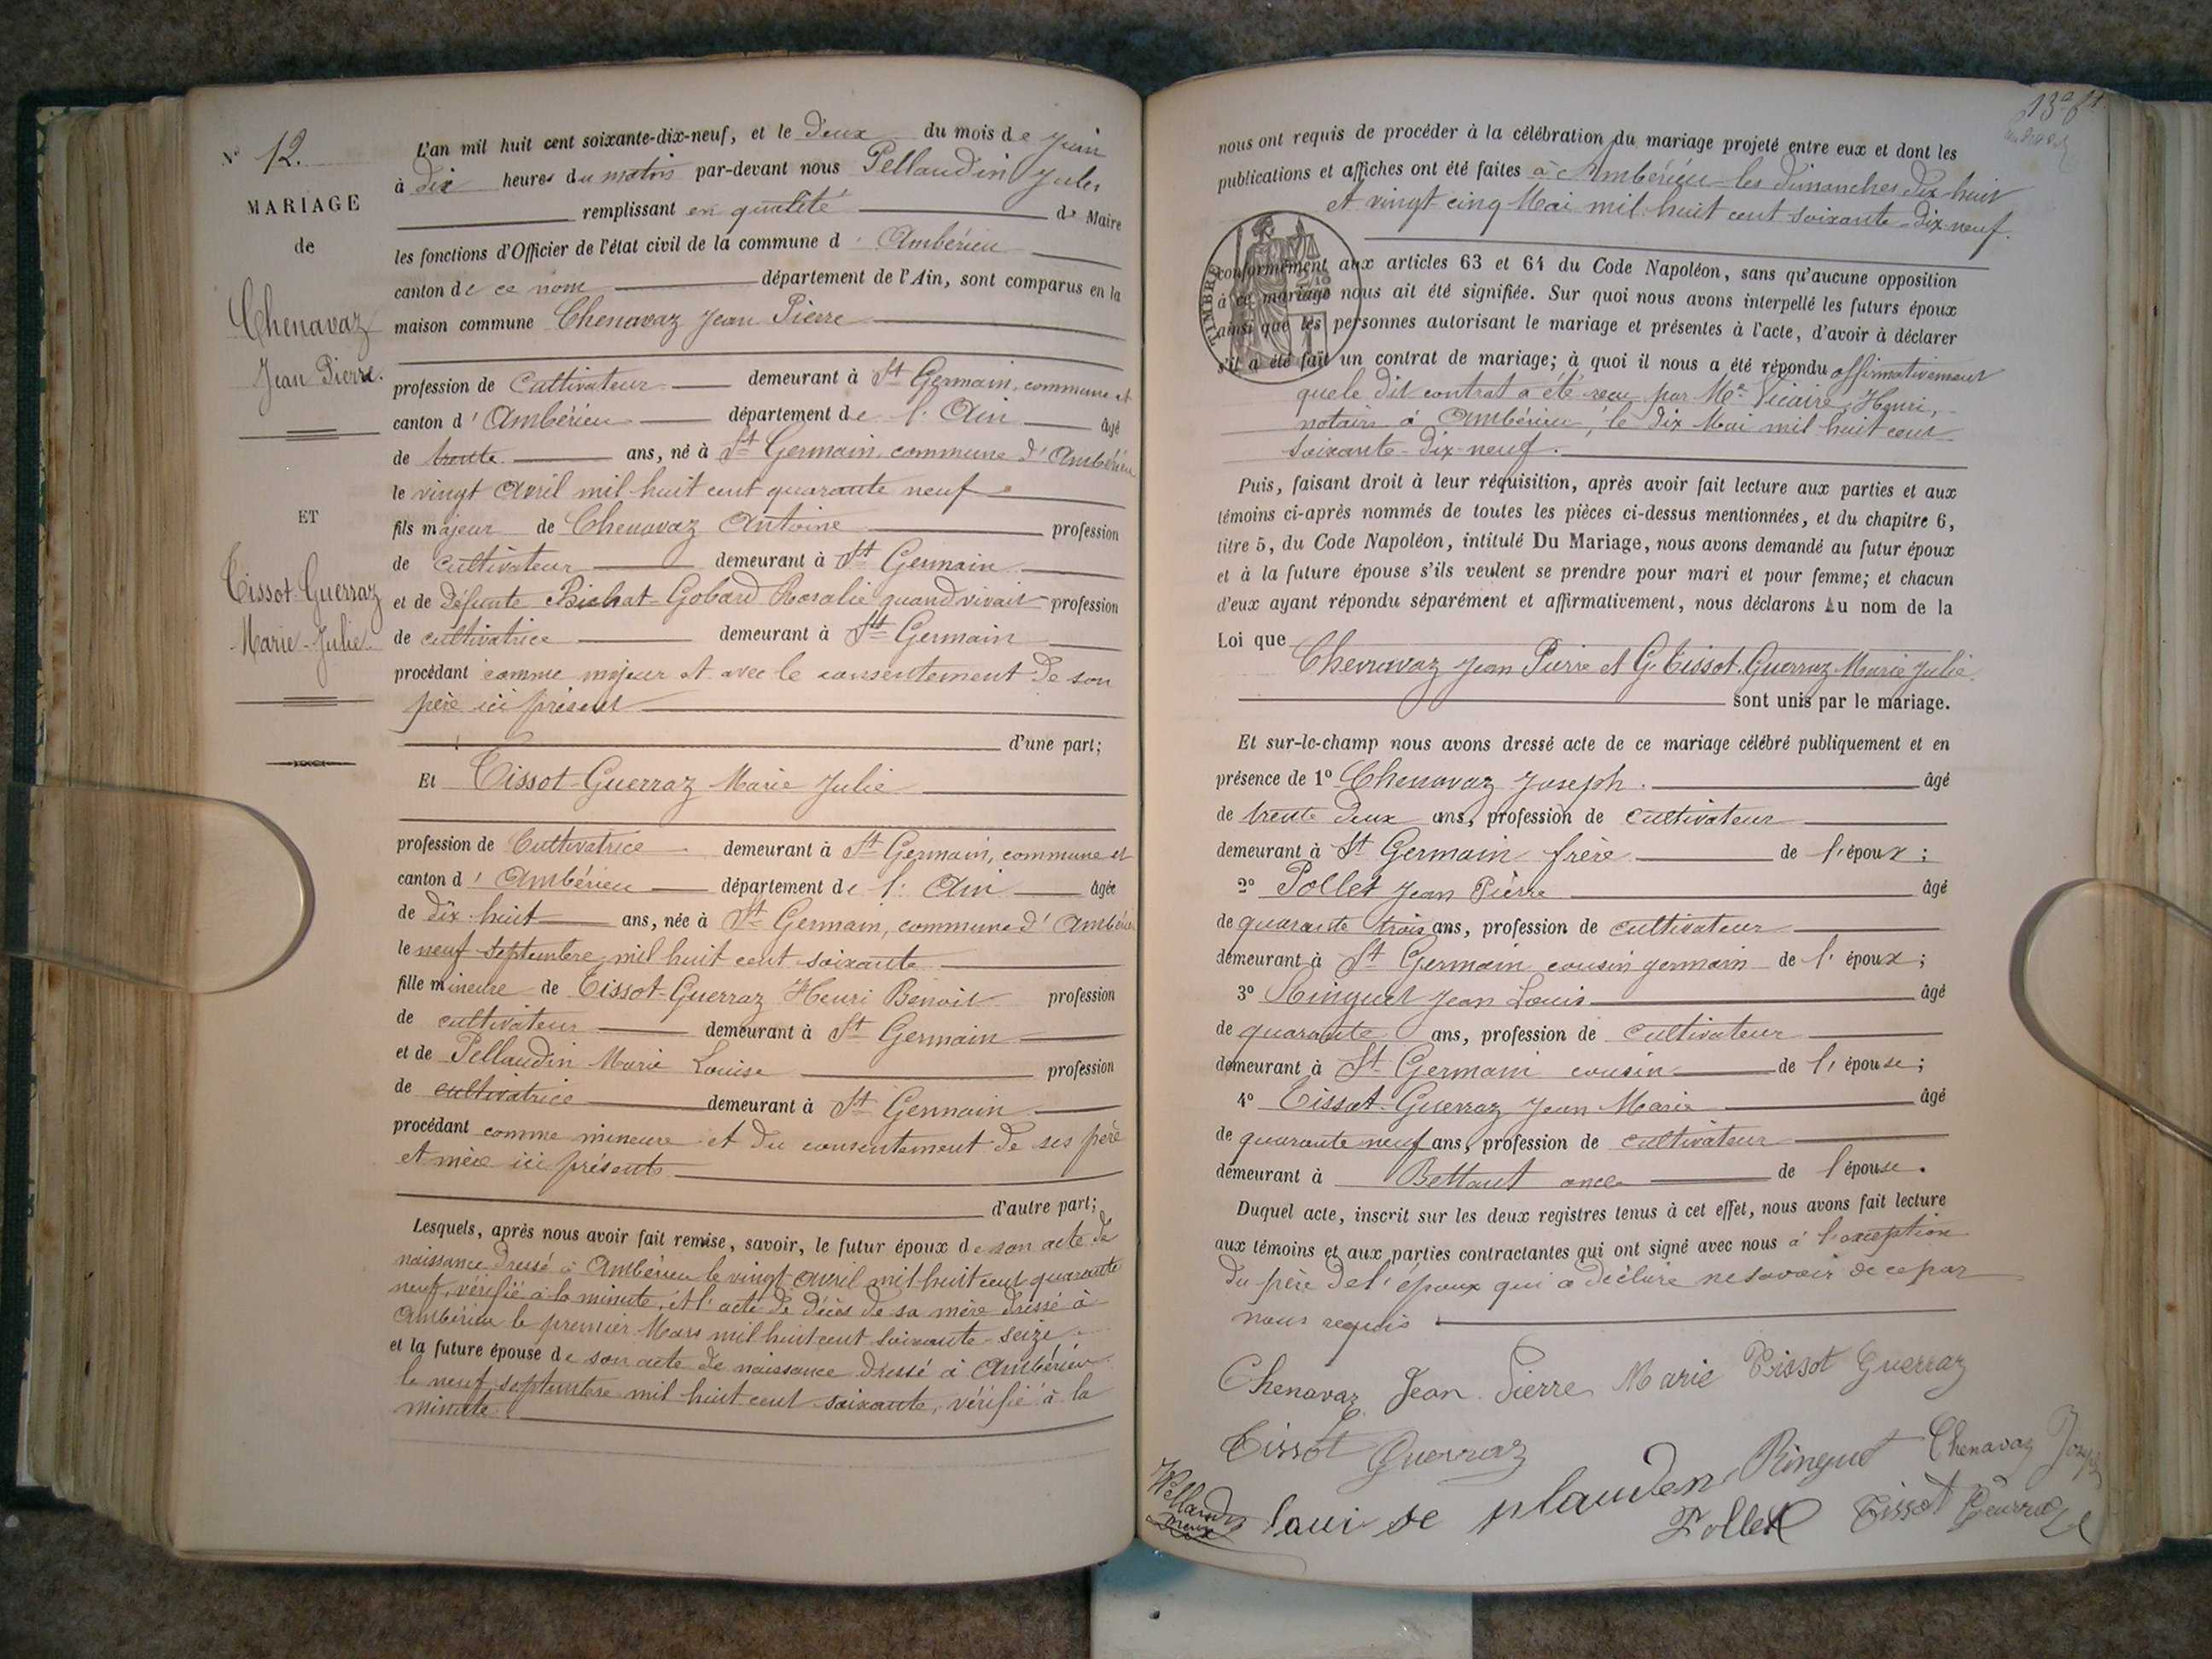 N° 12.
MARIAGE
de
Chenavaz
Jean Pierre.
ET
Tissot-Guerraz
Marie-Julie.
L'an mil huit cent soixante-dix-neuf, et le deux du mois de Juin
à dix heures du matin par-devant nous Pellaudin Jules
remplissant en qualité de Maire
les fonctions d'Officier de l'état civil de la commune d' Ambérieu
canton de ce nom département de l'Ain, sont comparus en la
maison commune Chenavaz Jean Pierre
profession de Cultivateur demeurant à St Germain, commune et
canton d' Ambérieu département de l' Ain âgé
de trente ans, né à St Germain, commune d' Ambérieu
le vingt Avril mil huit cent quarante neuf
fils majeur de Chenavaz Antoine profession
de cultivateur demeurant à St Germain
et de défunte Bichat-Gobard Rosalie quand vivait profession
de cultivatrice demeurant à St Germain
procédant comme majeur et avec le consentement de son
père ici présent
d'une part;
Et Tissot-Guerraz Marie Julie
profession de Cultivatrice demeurant à St Germain, commune et
canton d' Ambérieu département de l' Ain âgée
de dix-huit ans, née à St Germain, commune d' Ambérieu
le neuf septembre mil huit cent soixante
fille mineure de Tissot-Guerraz Henri Benoit profession
de cultivateur demeurant à St Germain
et de Pellaudin Marie Louise profession
de cultivatrice demeurant à St Germain
procédant comme mineure et du consentement de ses père
et mère ici présents
d'autre part;
Lesquels, après nous avoir fait remise, savoir, le futur époux de son acte de
naissance dressé à Ambérieu le vingt Avril mil huit cent quarante
neuf, vérifié à la minute, et l'acte de décès de sa mère dressé à
Ambérieu le premier Mars mil huit cent soixante-seize
et la future épouse de son acte de naissance dressé à Ambérieu
le neuf septembre mil huit cent soixante, vérifié à la
minute.
nous ont requis de procéder à la célébration du mariage projeté entre eux et dont les
publications et affiches ont été faites à Ambérieu les dimanches dix-huit
et vingt-cinq Mai mil huit cent soixante-dix-neuf.
TIMBRE
conformément aux articles 63 et 64 du Code Napoléon, sans qu'aucune opposition
à ce mariage nous ait été signifiée. Sur quoi nous avons interpellé les futurs époux
ainsi que les personnes autorisant le mariage et présentes à l'acte, d'avoir à déclarer
s'il a été fait un contrat de mariage; à quoi il nous a été répondu affirmativement
que le dit contrat a été reçu par Me Vicaire Henri,
notaire à Ambérieu, le dix Mai mil huit cent
soixante-dix-neuf.
Puis, faisant droit à leur réquisition, après avoir fait lecture aux parties et aux
témoins ci-après nommés de toutes les pièces ci-dessus mentionnées, et du chapitre 6,
titre 5, du Code Napoléon, intitulé Du Mariage, nous avons demandé au futur époux
et à la future épouse s'ils veulent se prendre pour mari et pour femme; et chacun
d'eux ayant répondu séparément et affirmativement, nous déclarons Au nom de la
Loi que
Chenavaz Jean Pierre et G. Tissot-Guerraz Marie Julie
sont unis par le mariage.
Et sur-le-champ nous avons dressé acte de ce mariage célébré publiquement et en
présence de 1° Chenavaz Joseph. âgé
de trente deux ans, profession de cultivateur
demeurant à St Germain frère de l'époux;
2° Pollet Jean Pierre âgé
de quarante trois ans, profession de cultivateur
demeurant à St Germain cousin germain de l'époux;
3° Ringuet Jean Louis âgé
de quarante ans, profession de cultivateur
demeurant à St Germain cousin de l'épouse;
4° Tissot-Guerraz Jean Marie âgé
de quarante neuf ans, profession de cultivateur
demeurant à Bettant oncle de l'épouse.
Duquel acte, inscrit sur les deux registres tenus à cet effet, nous avons fait lecture
aux témoins et aux parties contractantes qui ont signé avec nous à l'exception
du père de l'époux qui a déclaré ne savoir de ce par
nous requis
Chenavaz Jean Pierre Marie Tissot Guerraz
Tissot Guerraz Ringuet Chenavaz Joseph
Pellaudin
maire
loui se plauden Pollet Tissot Guerraz